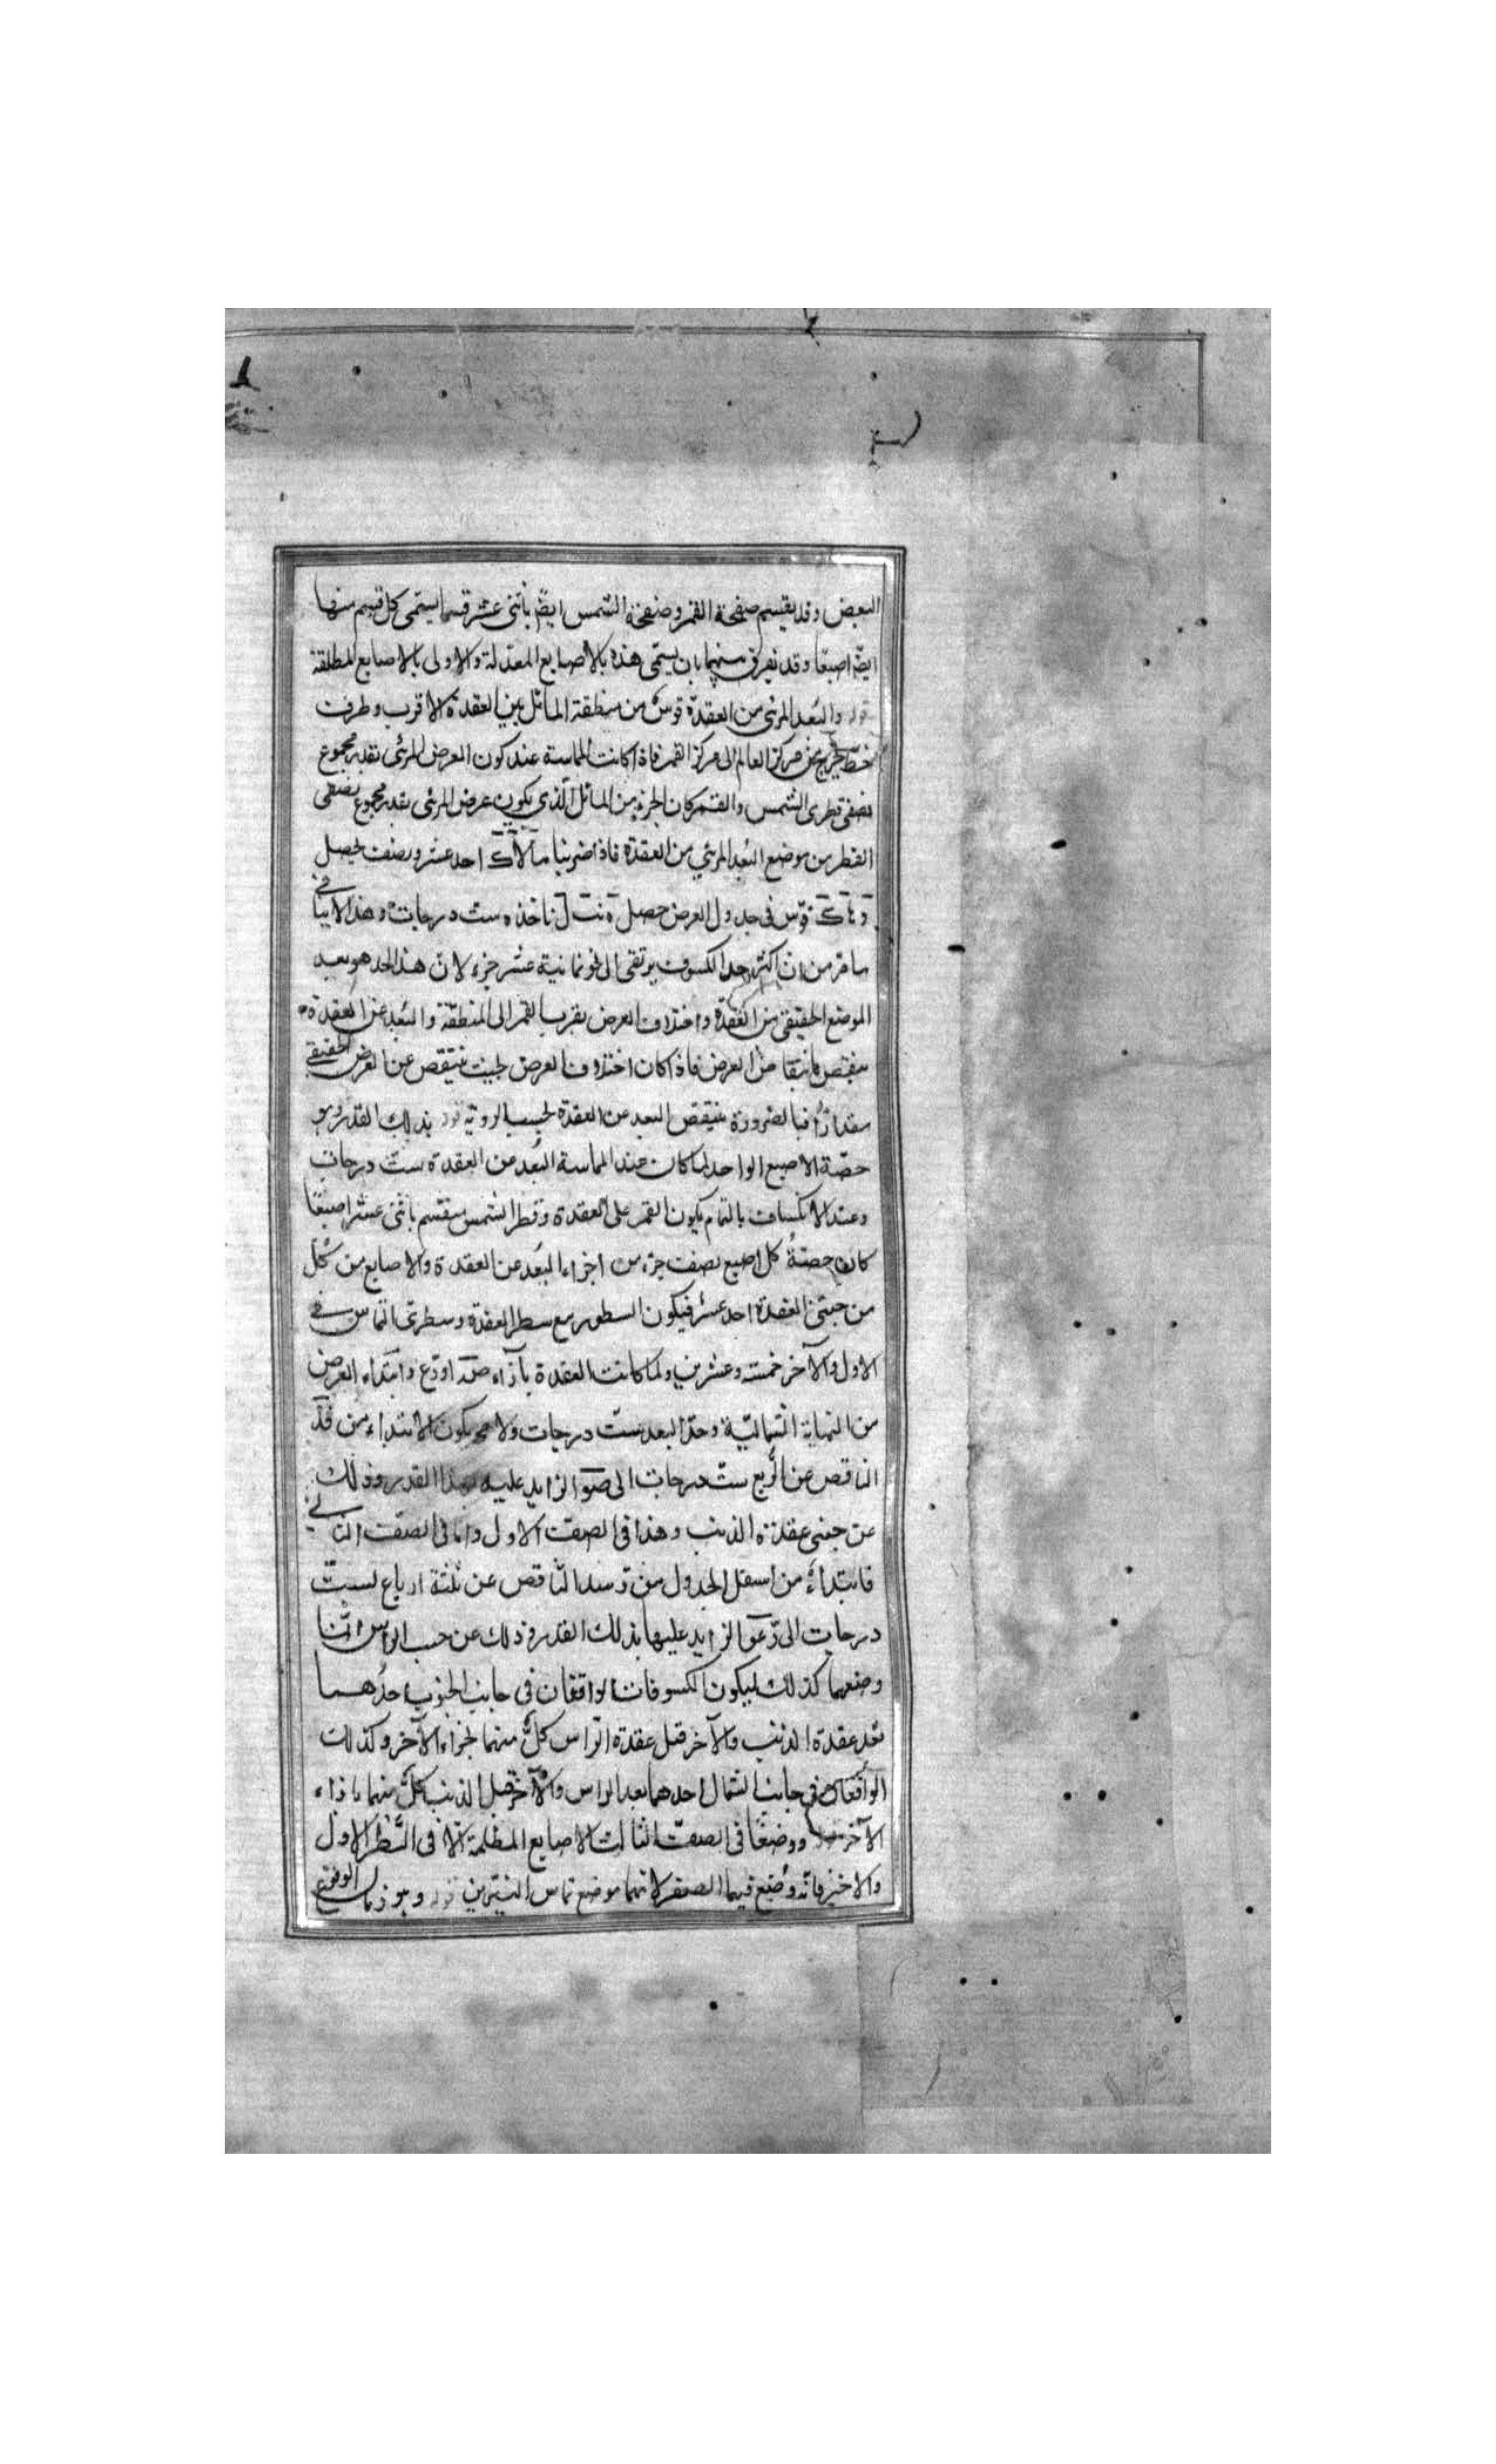 البعض وقد يقسم صفحة القمر وصفحة الشمس ايضا باثنى عشر قسما يسمى كل قسم منها
ايضا اصبعا وقد يفرق بينهما بان يسمى هذه بالاصابع المعدلة والاولى بالاصابع المطلقة
قوله والبعد المرئى من العقدة قوس من منطقة المائل بين العقدة الاقرب وطرف
خط يخرج من مركز العالم الى مركز القمر فاذا كانت المماسة عند كون العرض المرئى بقدر مجموع
نصفى قطرى الشمس والقمر كان الجزء من المائل الذى يكون عرض المرئى بقدر مجموع نصفى
القطر من موضع البعد المرئى من العقدة فاذا ضربنا احد عشر ونصف يحصل
قوس فى جدول العرض حصل ناخذه ست درجات وهذا لاينافى
مامر من ان اكثر حد الكسوف يرتقى الى نحو ثمانية عشر جزء لان هذا الحد هو بعد
الموضع الحقيقى من العقدة واختلاف العرض يقرب القمر الى المنطقة والبعد عن العقدة
العرض فاذا كان اختلاف العرض بحيث ينتقص عن العرض الحقيقى
مقدارا فبالضرورة ينتقص البعد عن العقدة بحسب الروية قوله بذلك القدر وهو
حصة الاصبع الواحد لما كان عند المماسة البعد عن العقدة ست درجات
وعند الانكساف بالتمام يكون القمر على العقدة وقطر الشمس ينقسم باثنى عشر اصبعا
كان حصة كل اصبع نصف جزء من اجزاء البعد عن العقدة والاصابع من كل
من جنبتى العقدة احد عشر فيكون السطور مع سطر العقدة وسطرى التماس فى
الاول والآخر خمسة وعشرين ولما كانت العقدة بازاء اورع وابتداء العرض
من النهاية الشمالية وحد البعد ست درجات ولا يكون الابتداء من فد
الناقص عن الربع ست درجات الى صو الزايد عليه بهذا القدر وذلك
عن جنبى عقدة الذنب وهذا فى الصف الاول واما فى الصف الثانى
فابتداؤه من اسفل الجدول من الناقص عن ثلثة ارباع لست
درجات الى رعو الزايد عليها بذلك القدر وذلك عن جنب الراس انما
وضعهما كذلك ليكون الكسوفات الواقعان فى جانب الجنوب احدهما
بعد عقدة الذنب والآخر قبل عقدة الراس كل منهما بحذاء الآخر وكذلك
الواقعان فى جانب الشمال احدهما بعد الراس والآخر قبل الذنب كل منهما باذاء
الآخر ووضعنا فى الصف الثالث الاصابع المظلمة الا فى السطر الاول
والاخير فانه وضع فيهما الصفر لانهما موضع تماس النيرين قوله وهو زمان الوقوع